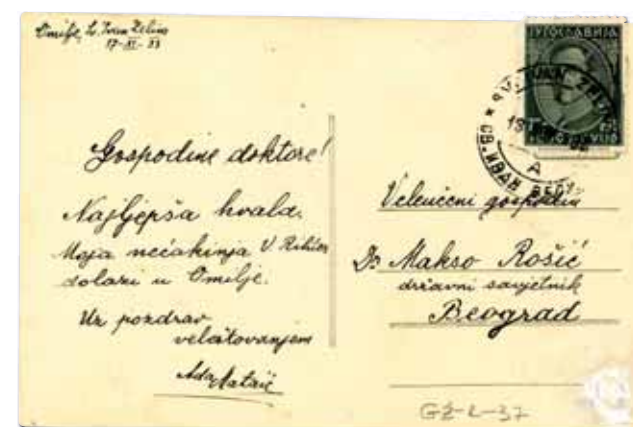 Omilje, Sv. Ivan Zelina
17-XI-33
Gospodine doktore!
Najljepša hvala.
Moja nećakinja V.
dolazi u Omilje.
Uz pozdrav
veleštovanjem
Ada
ЈУГОСЛАВИЈА
SV. IVAN ZELINA
СВ. ИВАН
A
Veleučeni gospodin
Dr Makso Rošić
državni savjetnik
Beograd
GZ-L-37